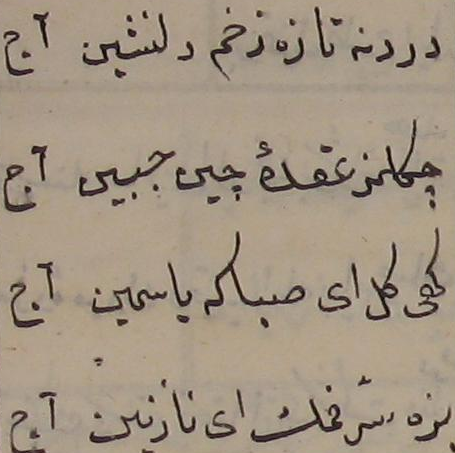 دردنه تازه زخم دلنشین آچ
چكلمز عقدهٔ چین جبین آچ
كهی كل ای صباكه یاسمین آچ
بزه ای نازنین آچ